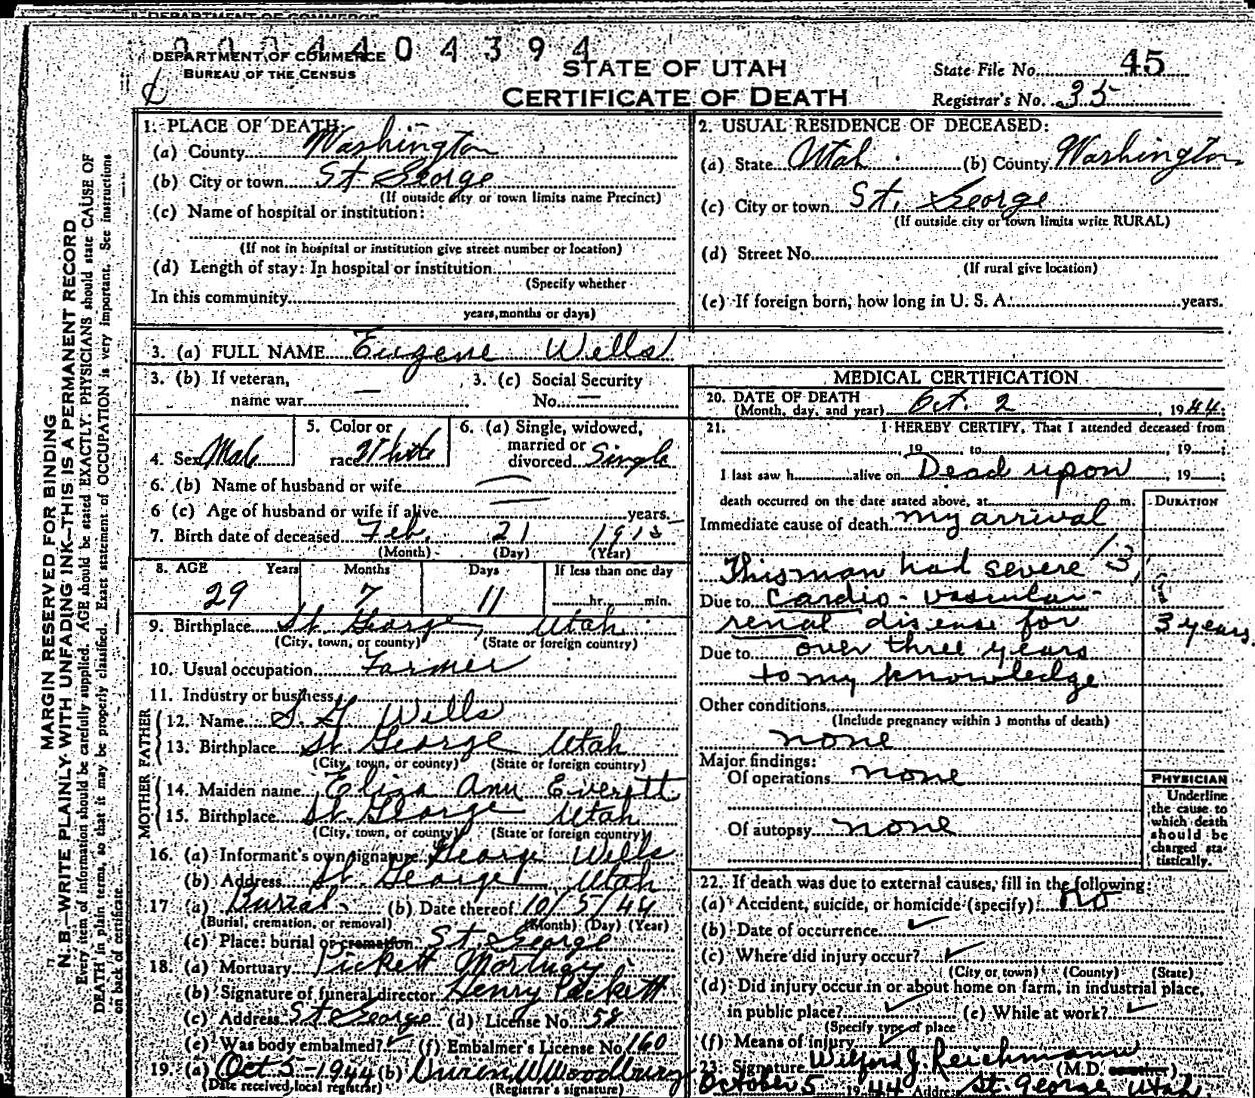 0 0 3 4 4 0 4 3 9 4
DEPARTMENT OF COMMERCE
BUREAU OF THE CENSUS
STATE OF UTAH
CERTIFICATE OF DEATH
State File No. 45
Registrar's No. 35
MARGIN RESERVED FOR BINDING
N. B.—WRITE PLAINLY WITH UNFADING INK—THIS IS A PERMANENT RECORD
Every item of information should be carefully supplied. AGE should be stated EXACTLY. PHYSICIANS should state CAUSE OF
DEATH in plain terms, so that it may be properly classified. Exact statement of OCCUPATION is very important. See instructions
on back of certificate.
1. PLACE OF DEATH
(a) County Washington
(b) City or town St George
(If outside city or town limits name Precinct)
(c) Name of hospital or institution:
(If not in hospital or institution give street number or location)
(d) Length of stay: In hospital or institution
(Specify whether
In this community
years, months or days)
2. USUAL RESIDENCE OF DECEASED:
(a) State Utah (b) County Washington
(c) City or town St. George
(If outside city or town limits write RURAL)
(d) Street No.
(If rural give location)
(e) If foreign born, how long in U. S. A. years.
3. (a) FULL NAME Eugene Wells
3. (b) If veteran, 3. (c) Social Security
name war — No. —
4. Sex Male 5. Color or race White 6. (a) Single, widowed, married or divorced Single
6. (b) Name of husband or wife —
6 (c) Age of husband or wife if alive — years.
7. Birth date of deceased Feb. 21 1915
(Month) (Day) (Year)
8. AGE Years Months Days If less than one day
29 7 11 hr. min.
9. Birthplace St. George, Utah
(City, town, or county) (State or foreign country)
10. Usual occupation Farmer
11. Industry or business
FATHER
12. Name S. G. Wells
13. Birthplace St George Utah
(City, town, or county) (State or foreign country)
MOTHER
14. Maiden name Eliza Ann Everett
15. Birthplace St. George Utah
(City, town, or county) (State or foreign country)
16. (a) Informant's own signature George Wells
(b) Address St. George, Utah
17 (a) Burial (b) Date thereof 10/5/44
(Burial, cremation, or removal) (Month) (Day) (Year)
(c) Place: burial or cremation St. George
18. (a) Mortuary Pickett Mortuary
(b) Signature of funeral director Henry Pickett
(c) Address St George (d) License No. 58
(e) Was body embalmed? ✓ (f) Embalmer's License No. 160
19. (a) Oct 5 - 1944 (b) Woodbury
(Date received local registrar) (Registrar's signature)
MEDICAL CERTIFICATION
20. DATE OF DEATH
(Month, day, and year) Oct. 2, 1944.
21. I HEREBY CERTIFY, That I attended deceased from
, 19 to , 19 ;
I last saw h alive on Dead upon, 19 ;
death occurred on the date stated above, at m. DURATION
Immediate cause of death my arrival
13,
This man had severe
Due to cardio-vascular-
renal disease for 3 years
Due to over three years
to my knowledge
Other conditions
(Include pregnancy within 3 months of death)
none
Major findings:
Of operations none
Of autopsy none
PHYSICIAN
Underline
the cause to
which death
should be
charged sta-
tistically.
22. If death was due to external causes, fill in the following:
(a) Accident, suicide, or homicide (specify) no
(b) Date of occurrence ✓
(c) Where did injury occur? ✓
(City or town) (County) (State)
(d) Did injury occur in or about home on farm, in industrial place,
in public place? ✓ (e) While at work? ✓
(Specify type of place
(f) Means of injury ✓
23. Signature Wilford J. Reichmann (M.D. or other)
October 5 1944 Address St. George, Utah.